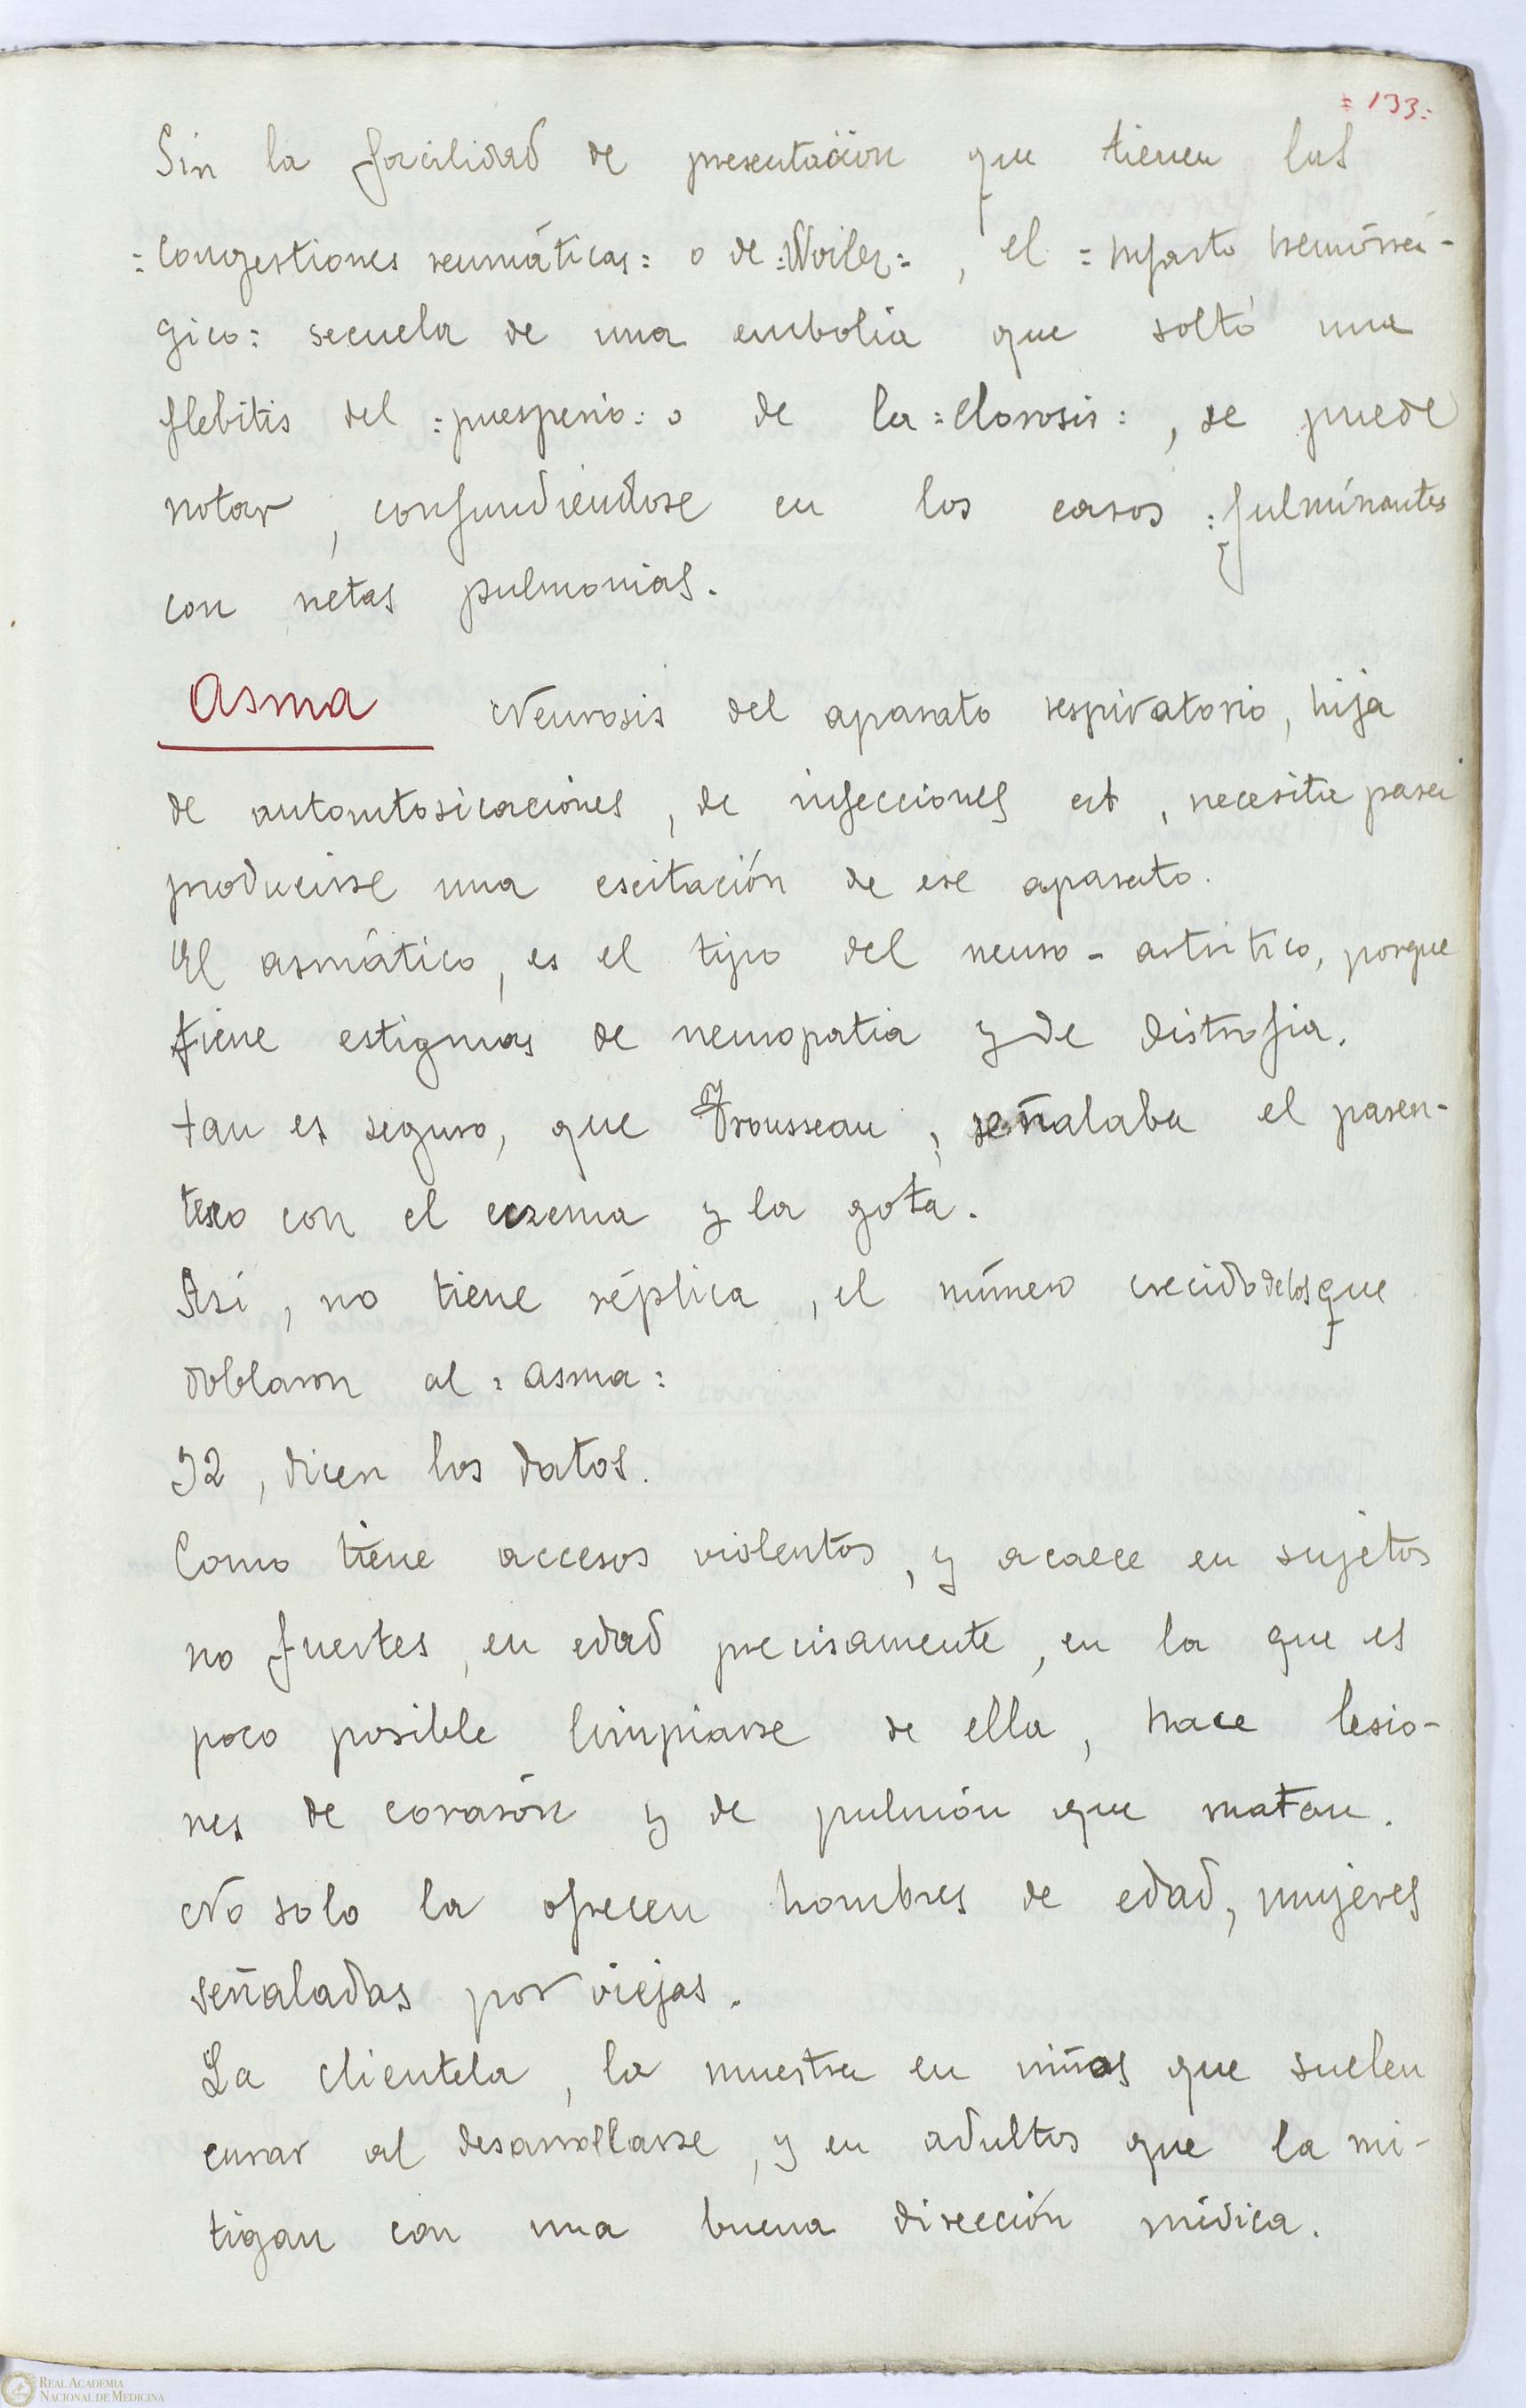 = 133 =
Sin la facilidad de presentación que tienen las
= Congestiones reumáticas = o de = Woilez = , el = Infarto hemórrá-
gico = secuela de una embolia que soltó una
flebitis del = puesperio = o de la = clorosis = , se puede
notar , confundiéndose en los casos = fulminantes
con netas pulmonias.
Asma Neurosis del aparato respiratorio, hija
de autointosicaciones , de infecciones ect , necesita para
producirse una escitación de ese aparato.
El asmático, es el tipo del neuro - artritico, porque
tiene estigmas de neuropatia y de distrofia.
tan es seguro, que Trousseau , señalaba el paren-
tesco con el eczema y la gota.
Así , no tiene réplica , el número crecido de los que
doblaron al = asma =
92 , dicen los datos.
Como tiene accesos violentos , y acaece en sujetos
no fuertes , en edad precisamente , en la que es
poco posible limpiarse de ella , hace lesio-
nes de corasón y de pulmón que matan.
No solo la ofrecen hombres de edad, mujeres
señaladas por viejas.
La clientela , la muestra en niños que suelen
curar al desarrollarse , y en adultos que la mi-
tigan con una buena dirección médica.
REAL ACADEMIA
NACIONAL DE MEDICINA